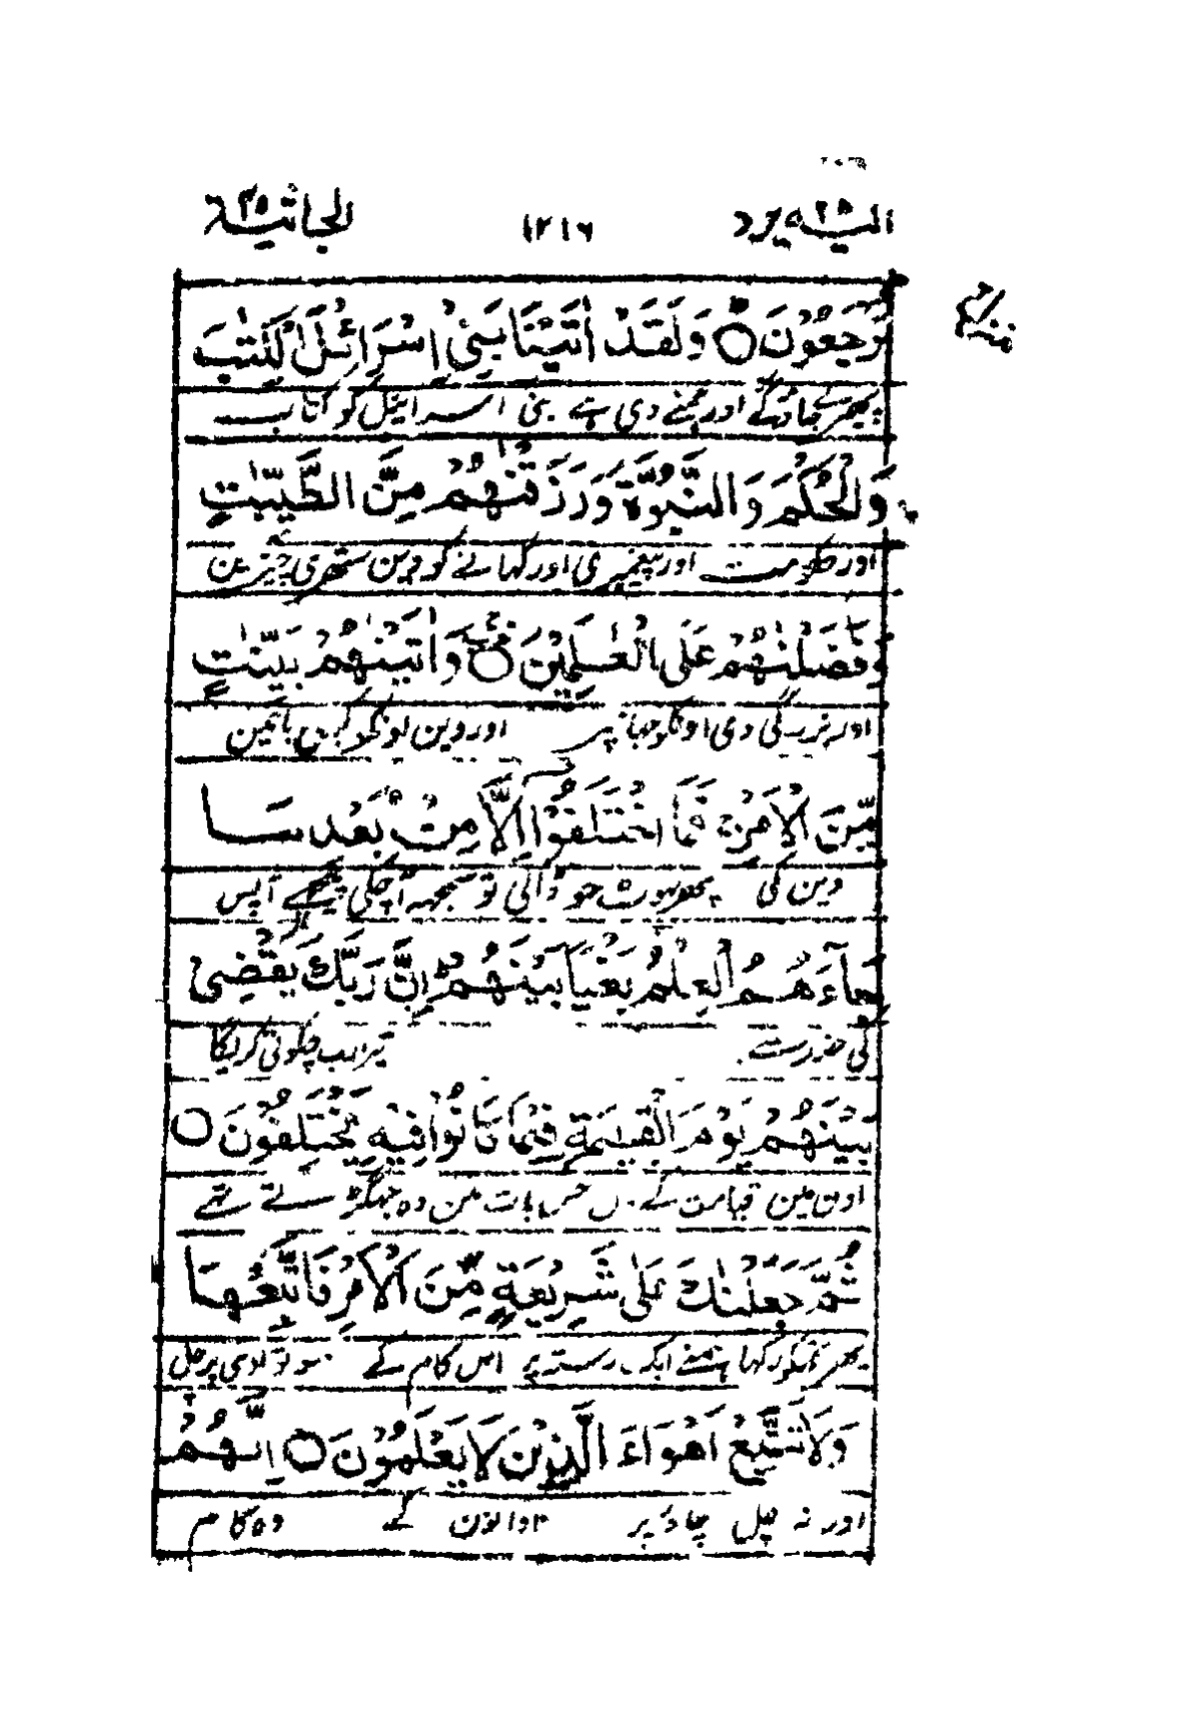 الیه یرد ٢٥ ١٢١٦ الجاثیة ٤٥
تُرْجَعُوْنَ ○ وَلَقَدْ اٰتَیْنَا بَنِیْۤ اِسْرَآئِیْلَ الْكِتٰبَ
پھر جاؤگے اور ہمنے دی ہے بنی اسرائیل کو کتاب
وَالْحُكْمَ وَالنُّبُوَّةَ وَرَزَقْنٰهُمْ مِّنَ الطَّیِّبٰتِ
اور حکومت اور پیغمبری اور کہانے کو دین ستھری چیزین
وَفَضَّلْنٰهُمْ عَلَی الْعٰلَمِیْنَ ○ وَاٰتَیْنٰهُمْ بَیِّنٰتٍ
اور بزرگی دی اونکو جہان پر اور دین اونکو کہلی باتین
مِّنَ الْاَمْرِ فَمَا اخْتَلَفُوْۤا اِلَّا مِنْۢ بَعْدِ مَا
دین کی پھر پھوٹ جو ڈالی تو سمجہہ آچکی پیچھے آپس
جَآءَهُمُ الْعِلْمُ بَغْیًۢا بَیْنَهُمْ اِنَّ رَبَّكَ یَقْضِیْ
کی ضد سے تیرا رب چکوتی کریگا
بَیْنَهُمْ یَوْمَ الْقِیٰمَةِ فِیْمَا كَانُوْا فِیْهِ یَخْتَلِفُوْنَ ○
اون مین قیامت کے دن جس بات مین وہ جہگڑتے تھے
ثُمَّ جَعَلْنٰكَ عَلٰی شَرِیْعَةٍ مِّنَ الْاَمْرِ فَاتَّبِعْهَا
پھر تجکو رکہا ہمنے ایک رستہ پر اس کام کے سو تو اوسی پر چل
وَلَا تَتَّبِعْ اَهْوَآءَ الَّذِیْنَ لَا یَعْلَمُوْنَ ○ اِنَّهُمْ
اور نہ چل چاؤ پر نادانون کے وہ کام